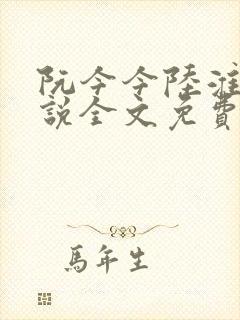 阮今今陸淮
說全文免費
馬年生